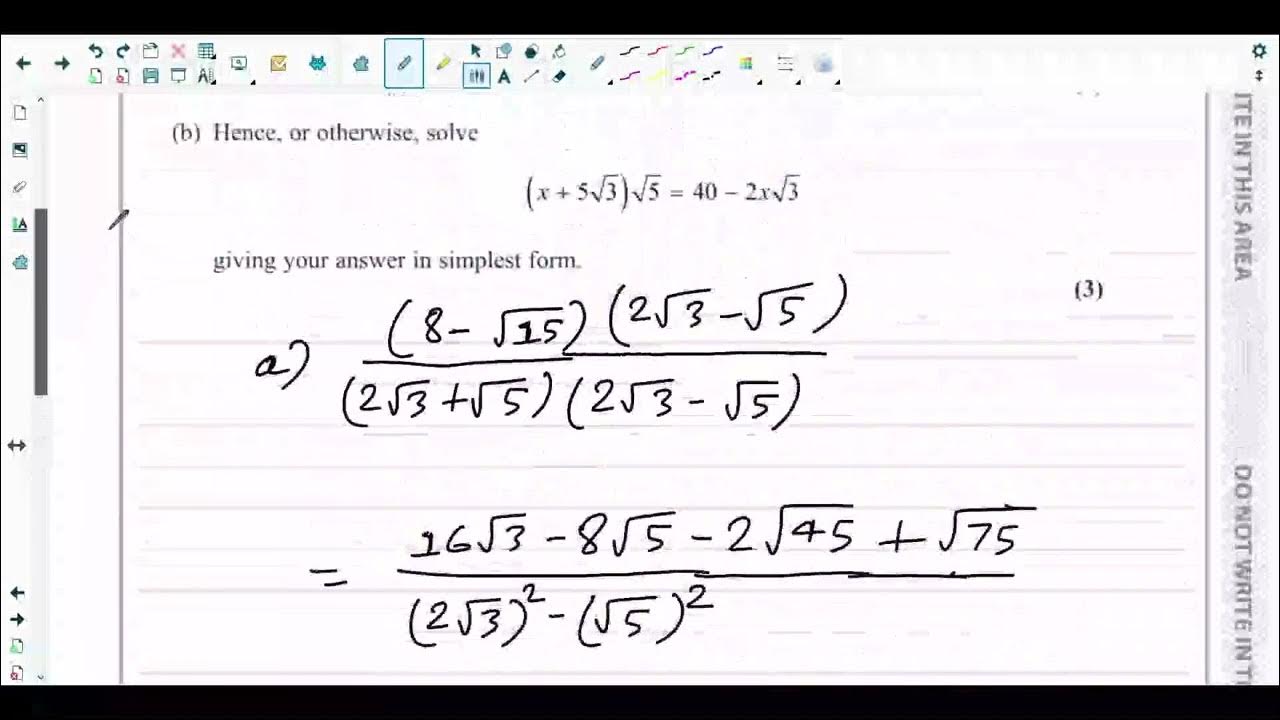 (b) Hence, or otherwise, solve
(x + 5√3)√5 = 40 − 2x√3
giving your answer in simplest form.
(3)
a) (8 − √15) (2√3 − √5) / (2√3 + √5) (2√3 − √5)
= 16√3 − 8√5 − 2√45 + √75 / (2√3)² − (√5)²
ITE IN THIS AREA
DO NOT WRITE IN T